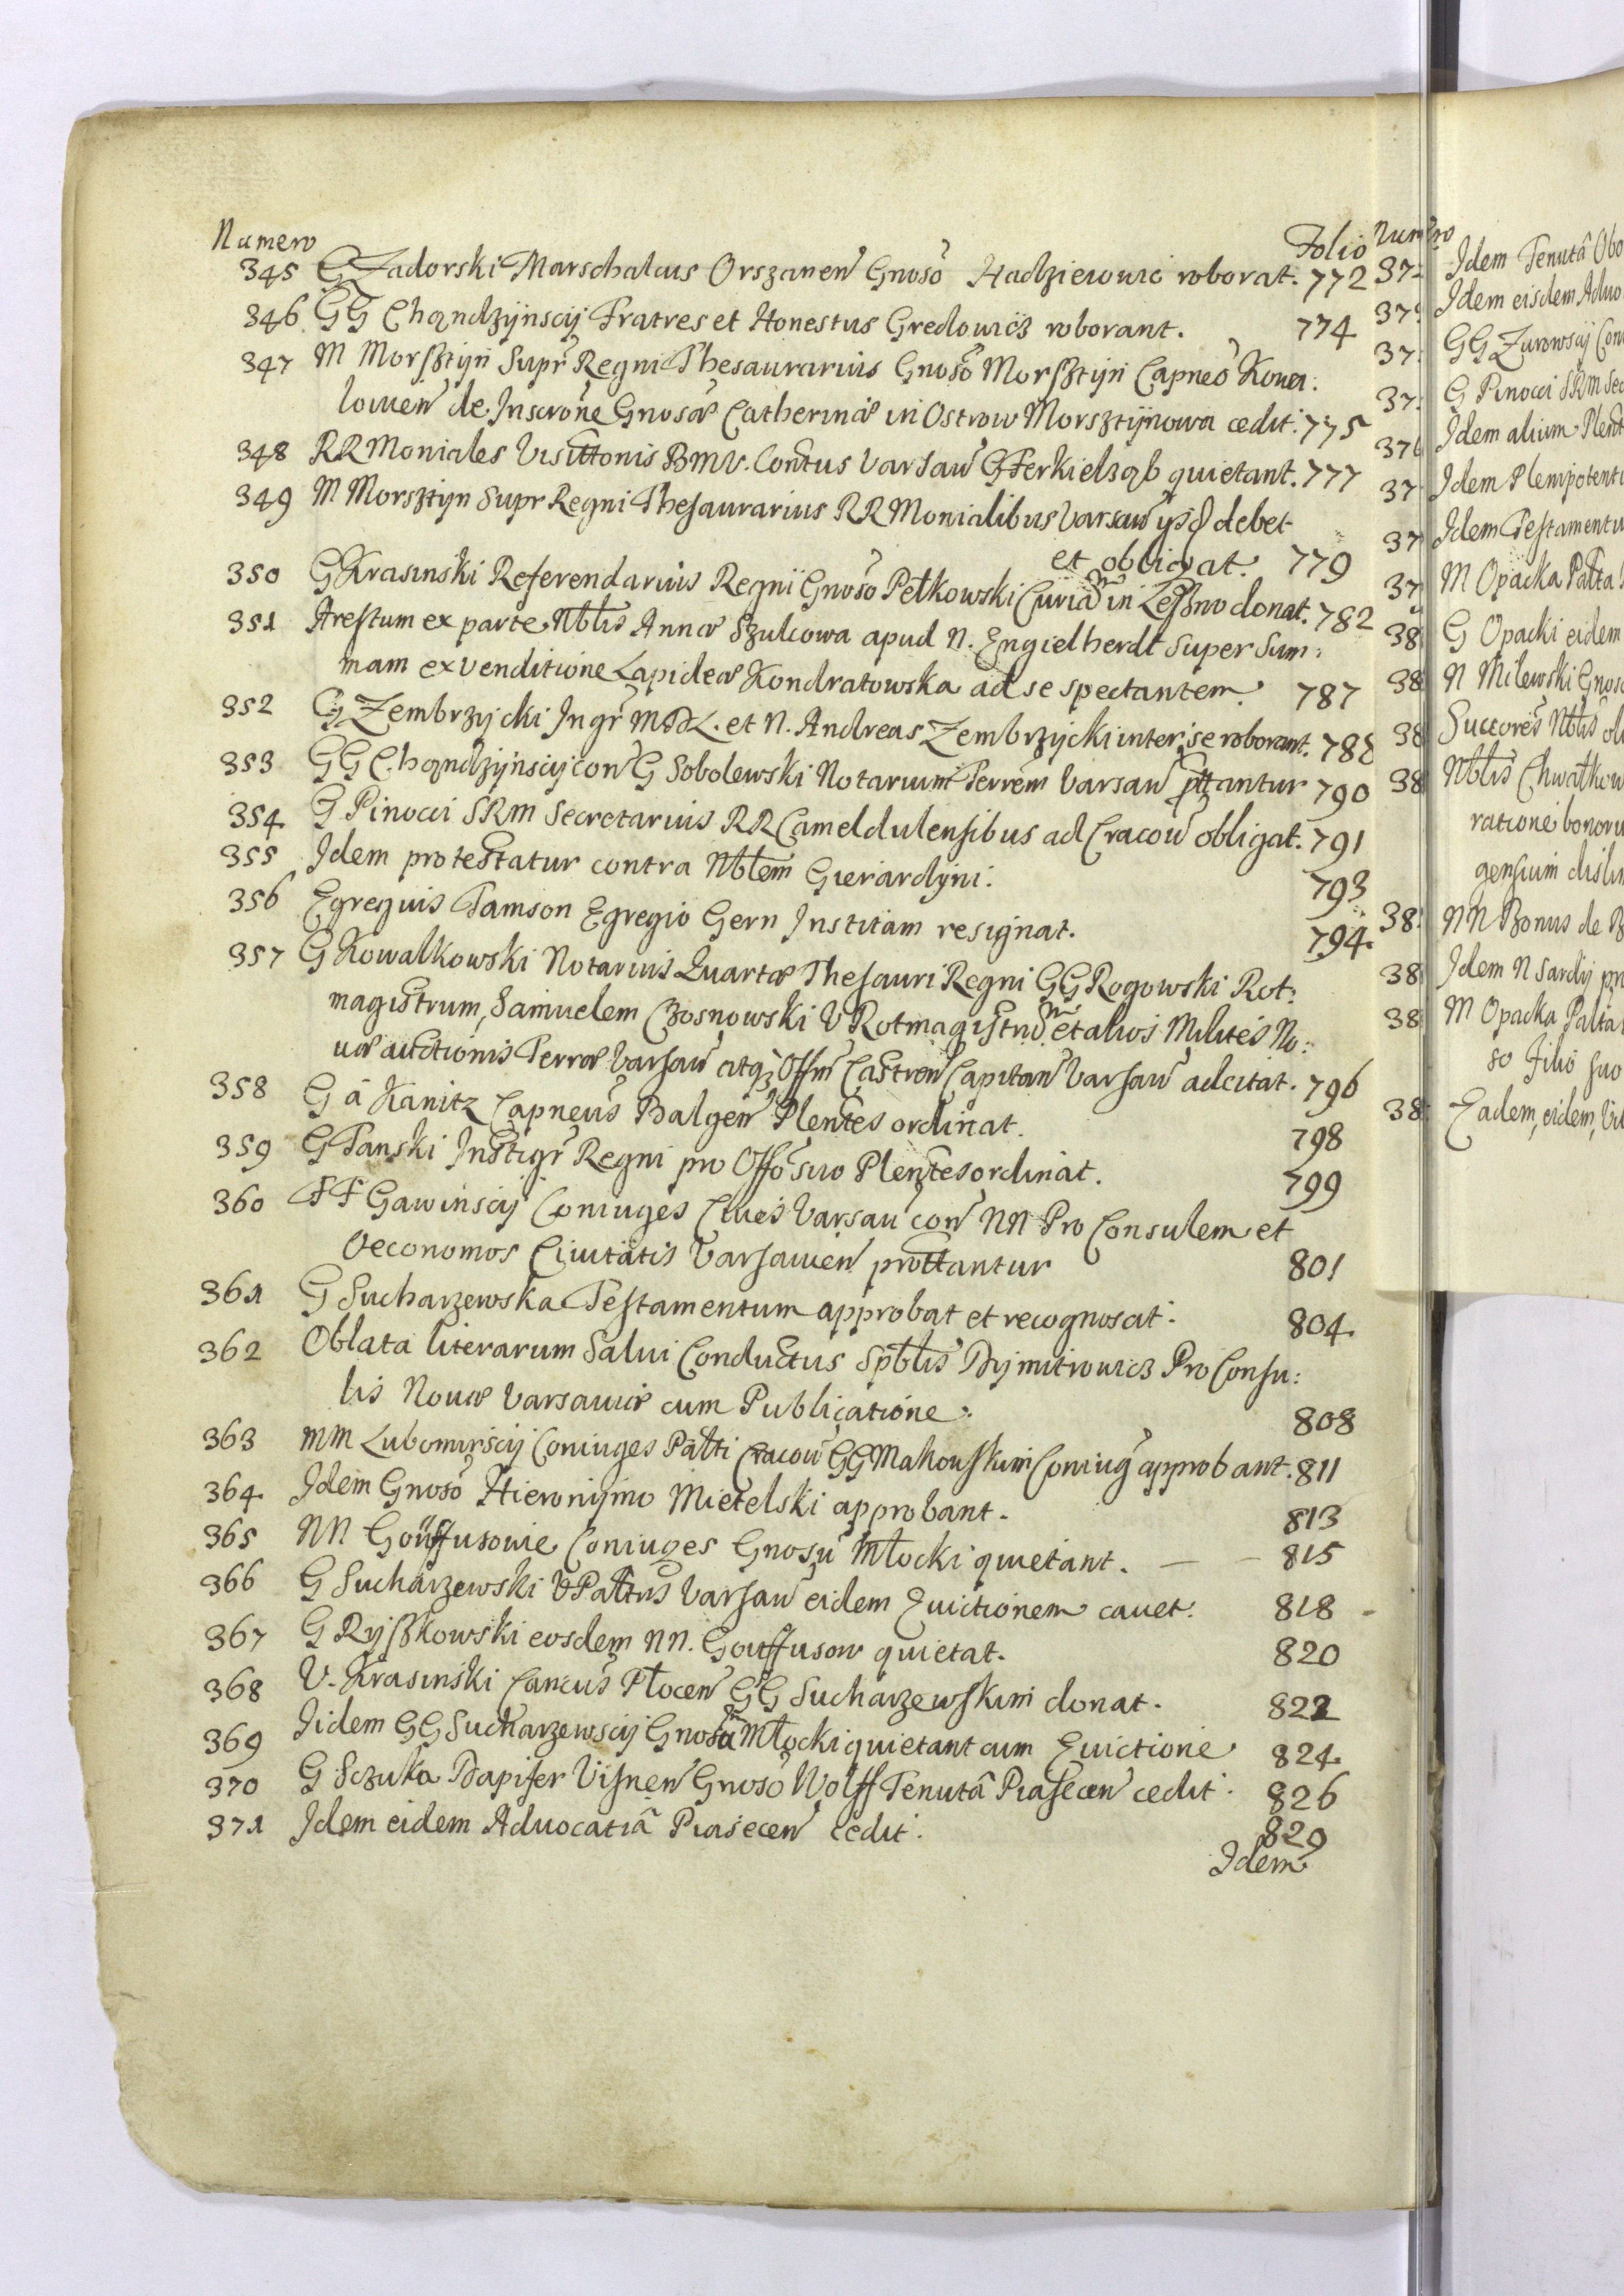 Numero Folio
345 G Zadorski Marschalcus Orszanen Gnoso Hadziewic roborat. 772
346 GG Chądzÿnscÿ Fratres et Honestus Gredowicz roborant. 774
347 M Morsztÿn Supr Regni Thesaurarius Gnoso Morsztÿn Capneo Kowa:
lowen de Inscrone Gnosæ Catherinæ in Ostrow Morsztÿnowa cedit. 775
348 RR Moniales Visittonis BMV. Contus Varsaw G Ferkielsqb quietant. 777
349 M Morsztyn Supr Regni Thesaurarius RR Monialibus Varsaw debet
et obligat. 779
350 G Krasinski Referendarius Regni Gnoso Petkowski Curiam in Leszno donat. 782
351 Arestum ex parte Nblis Annæ Szulcowa apud N. Engielherdt Super Sum:
mam ex venditione Lapideæ Kondratowska ad se spectantem. 787
352 G Zembrzycki Ingr MDL. et N. Andreas Zembrzycki inter se roborant. 788
353 GG Chądzÿnscÿ con G Sobolewski Notarium Terrem Varsaw pttantur 790
354 G Pinocci SRM Secretarius RR Cameldulensibus ad Cracow obligat. 791
355 Idem protestatur contra Nblem Gierardÿni. 793
356 Egregius Tamson Egregio Gern Institam resignat. 794.
357 G Kowalkowski Notarius Quartæ Thesauri Regni GG Rogowski Rot:
magistrum, Samuelem Czosnowski V Rotmagistrum et alios Milites No:
væ auctionis Terræ Varsaw atq Offm Castren Capitan Varsaw adcitat. 796
358 G á Kanitz Capneus Balgen Plentes ordinat. 798
359 G Tanski Instigr Regni pro Offo suo Plentes ordinat. 799
360 FF Gawinscÿ Coniuges Cives Varsaw con NN Pro Consulem et
Oeconomos Civitatis Varsavien prottantur 801
361 G Sucharzewska Testamentum approbat et recognoscit. 804.
362 Oblata literarum Salvi Conductus Spblis Dÿmitrowicz Pro Consu:
lis Novæ Varsaviæ cum Publicatione. 808
363 MM Lubomirscÿ Coniuges Palti Cracow GG Makowskim Coniug approbant. 811
364. Idem Gnoso Hieronÿmo Mietelski approbant. 813
365 NN Gouffusowie Coniuges Gnosu Młocki quietant. 815
366 G Sucharzewski V Paltus Varsaw eidem Evictionem cavet. 818
367 G Ryszkowski eosdem NN. Gouffusow quietat. 820
368 V. Krasinski Cancus Płocen GG Sucharzewskim donat. 822
369 Iidem GG Sucharzewscÿ Gnosu Młocki quietant cum Evictione 824.
370 G Sczuka Dapifer Visnen Gnoso Wolff Tenutâ Piasecen cedit. 826
371 Idem eidem Advocatiâ Piasecen cedit. 829
Idem
Numero
Idem Tenutâ
Idem eisdem
GG Zurowscÿ
G Pinocci SRM
376 Idem alium
Idem
Idem
M Opacka Palta
G Opacki eidem
N Milewski
Succores Nblis
Nblis
ratione
gensium
NN Bonus de
Idem N Sardÿ
M Opacka Palta
so Filio suo
Eadem, eidem,